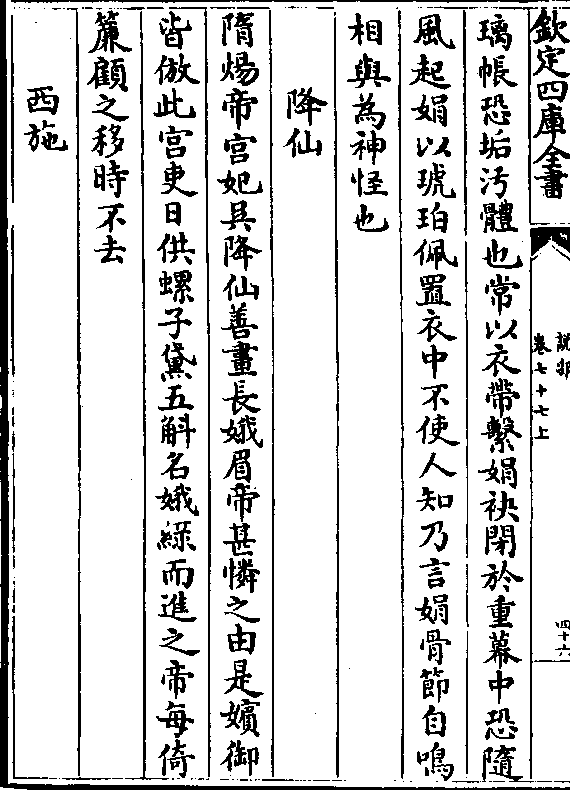 欽定四庫全書
說郛
卷七十七上
四十六
璃帳恐垢汚體也常以衣帶繫娟袂閉於重幕中恐隨
風起娟以琥珀佩置衣中不使人知乃言娟骨節自鳴
相與為神怪也
降仙
隋煬帝宮妃具降仙善畫長娥眉帝甚憐之由是嬪御
皆倣此宮吏日供螺子黛五斛名娥綠而進之帝每倚
簾顧之移時不去
西施